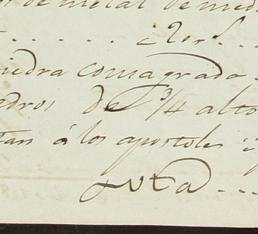 de metal de med
piedra consagrada
adros de 3/4 alto
tan á los apostoles